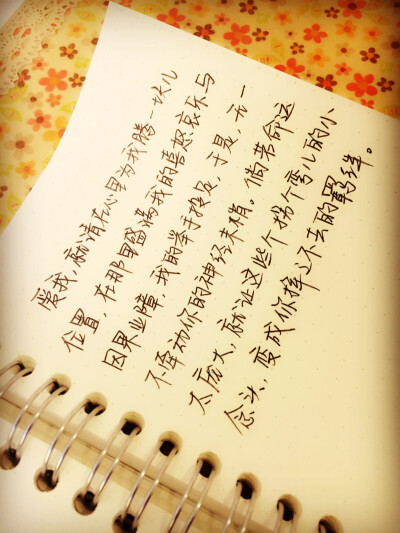 爱我，就请在心里为我腾一块儿
位置，在那里盛满我的喜怒哀乐与
因果业障，我的举手投足，于是，无一
不牵动你的神经末梢。倘若命运
太庞大，就让这些个拐个弯儿的小
念头，变成你挥之不去的羁绊。